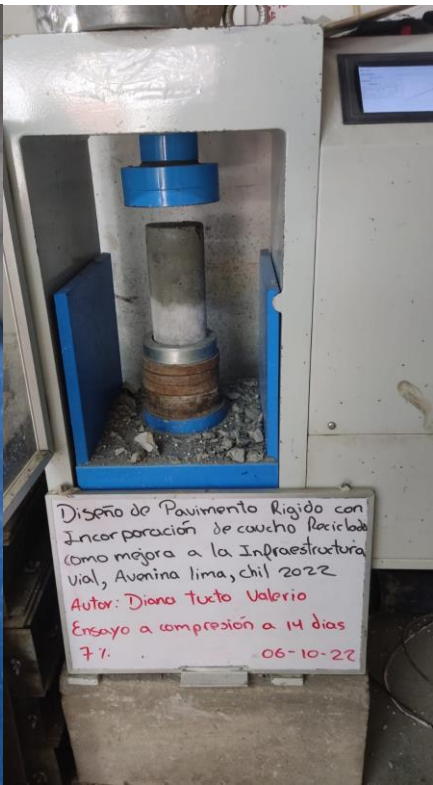 Diseño de Pavimento Rigido con
Incorporación de caucho Reciclado
como mejora a la Infraestructura
Vial, Avenina lima, chil 2022
Autor: Diana Tucto Valerio
Ensayo a compresión a 14 dias
7%. 06-10-22